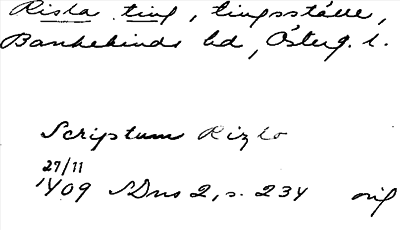 Rista ting, tingsställe,
Bankekinds hd, Österg. l.
Scriptum Rizlo
27/11
1409 SDns 2, s. 234 orig